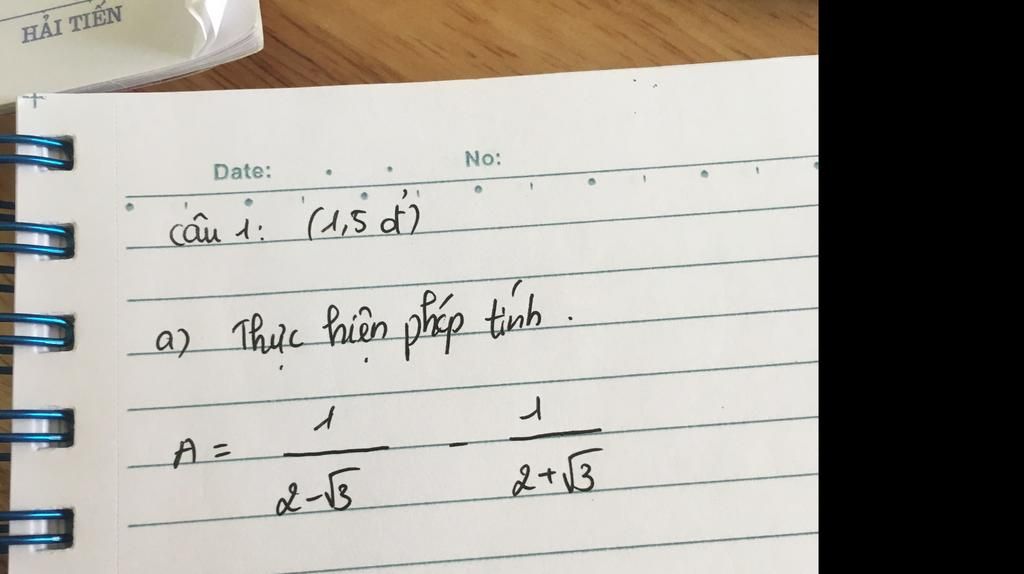 HẢI TIẾN
Date: No:
Câu 1: (1,5 đ)
a) Thực hiện phép tính.
A = \frac{1}{2-\sqrt{3}} - \frac{1}{2+\sqrt{3}}